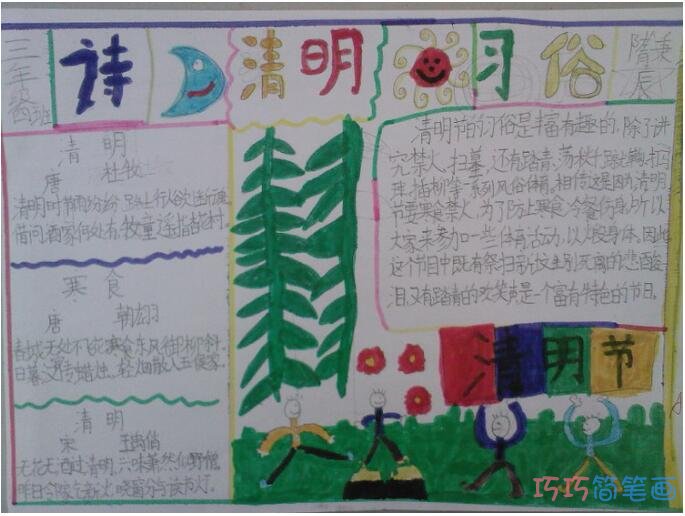 三年级
班
诗
清明
习俗
隋秉
辰
清 明
唐 杜牧
清明时节雨纷纷,路上行人欲断魂
借问酒家何处有,牧童遥指杏花村.
寒 食
唐 韩翃
春城无处不飞花,寒食东风御柳斜.
日暮汉传蜡烛,轻烟散入五侯家.
清 明
宋 王禹偁
无花无酒过清明,兴味萧然似野僧
昨日邻家乞新火,晓窗分与读书灯.
清明节的习俗是丰富有趣的,除了讲
究禁火、扫墓,还有踏青、荡秋千、蹴鞠、打马
球、插柳等一系列风俗体育。相传这是因为清明
节要寒食禁火,为了防止寒食冷餐伤身,所以
大家来参加一些体育活动,以锻炼身体。因此
这个节日中既有祭扫新坟生别死离的悲酸
泪,又有踏青的欢笑声是一个富有特色的节日。
清明节
巧巧简笔画